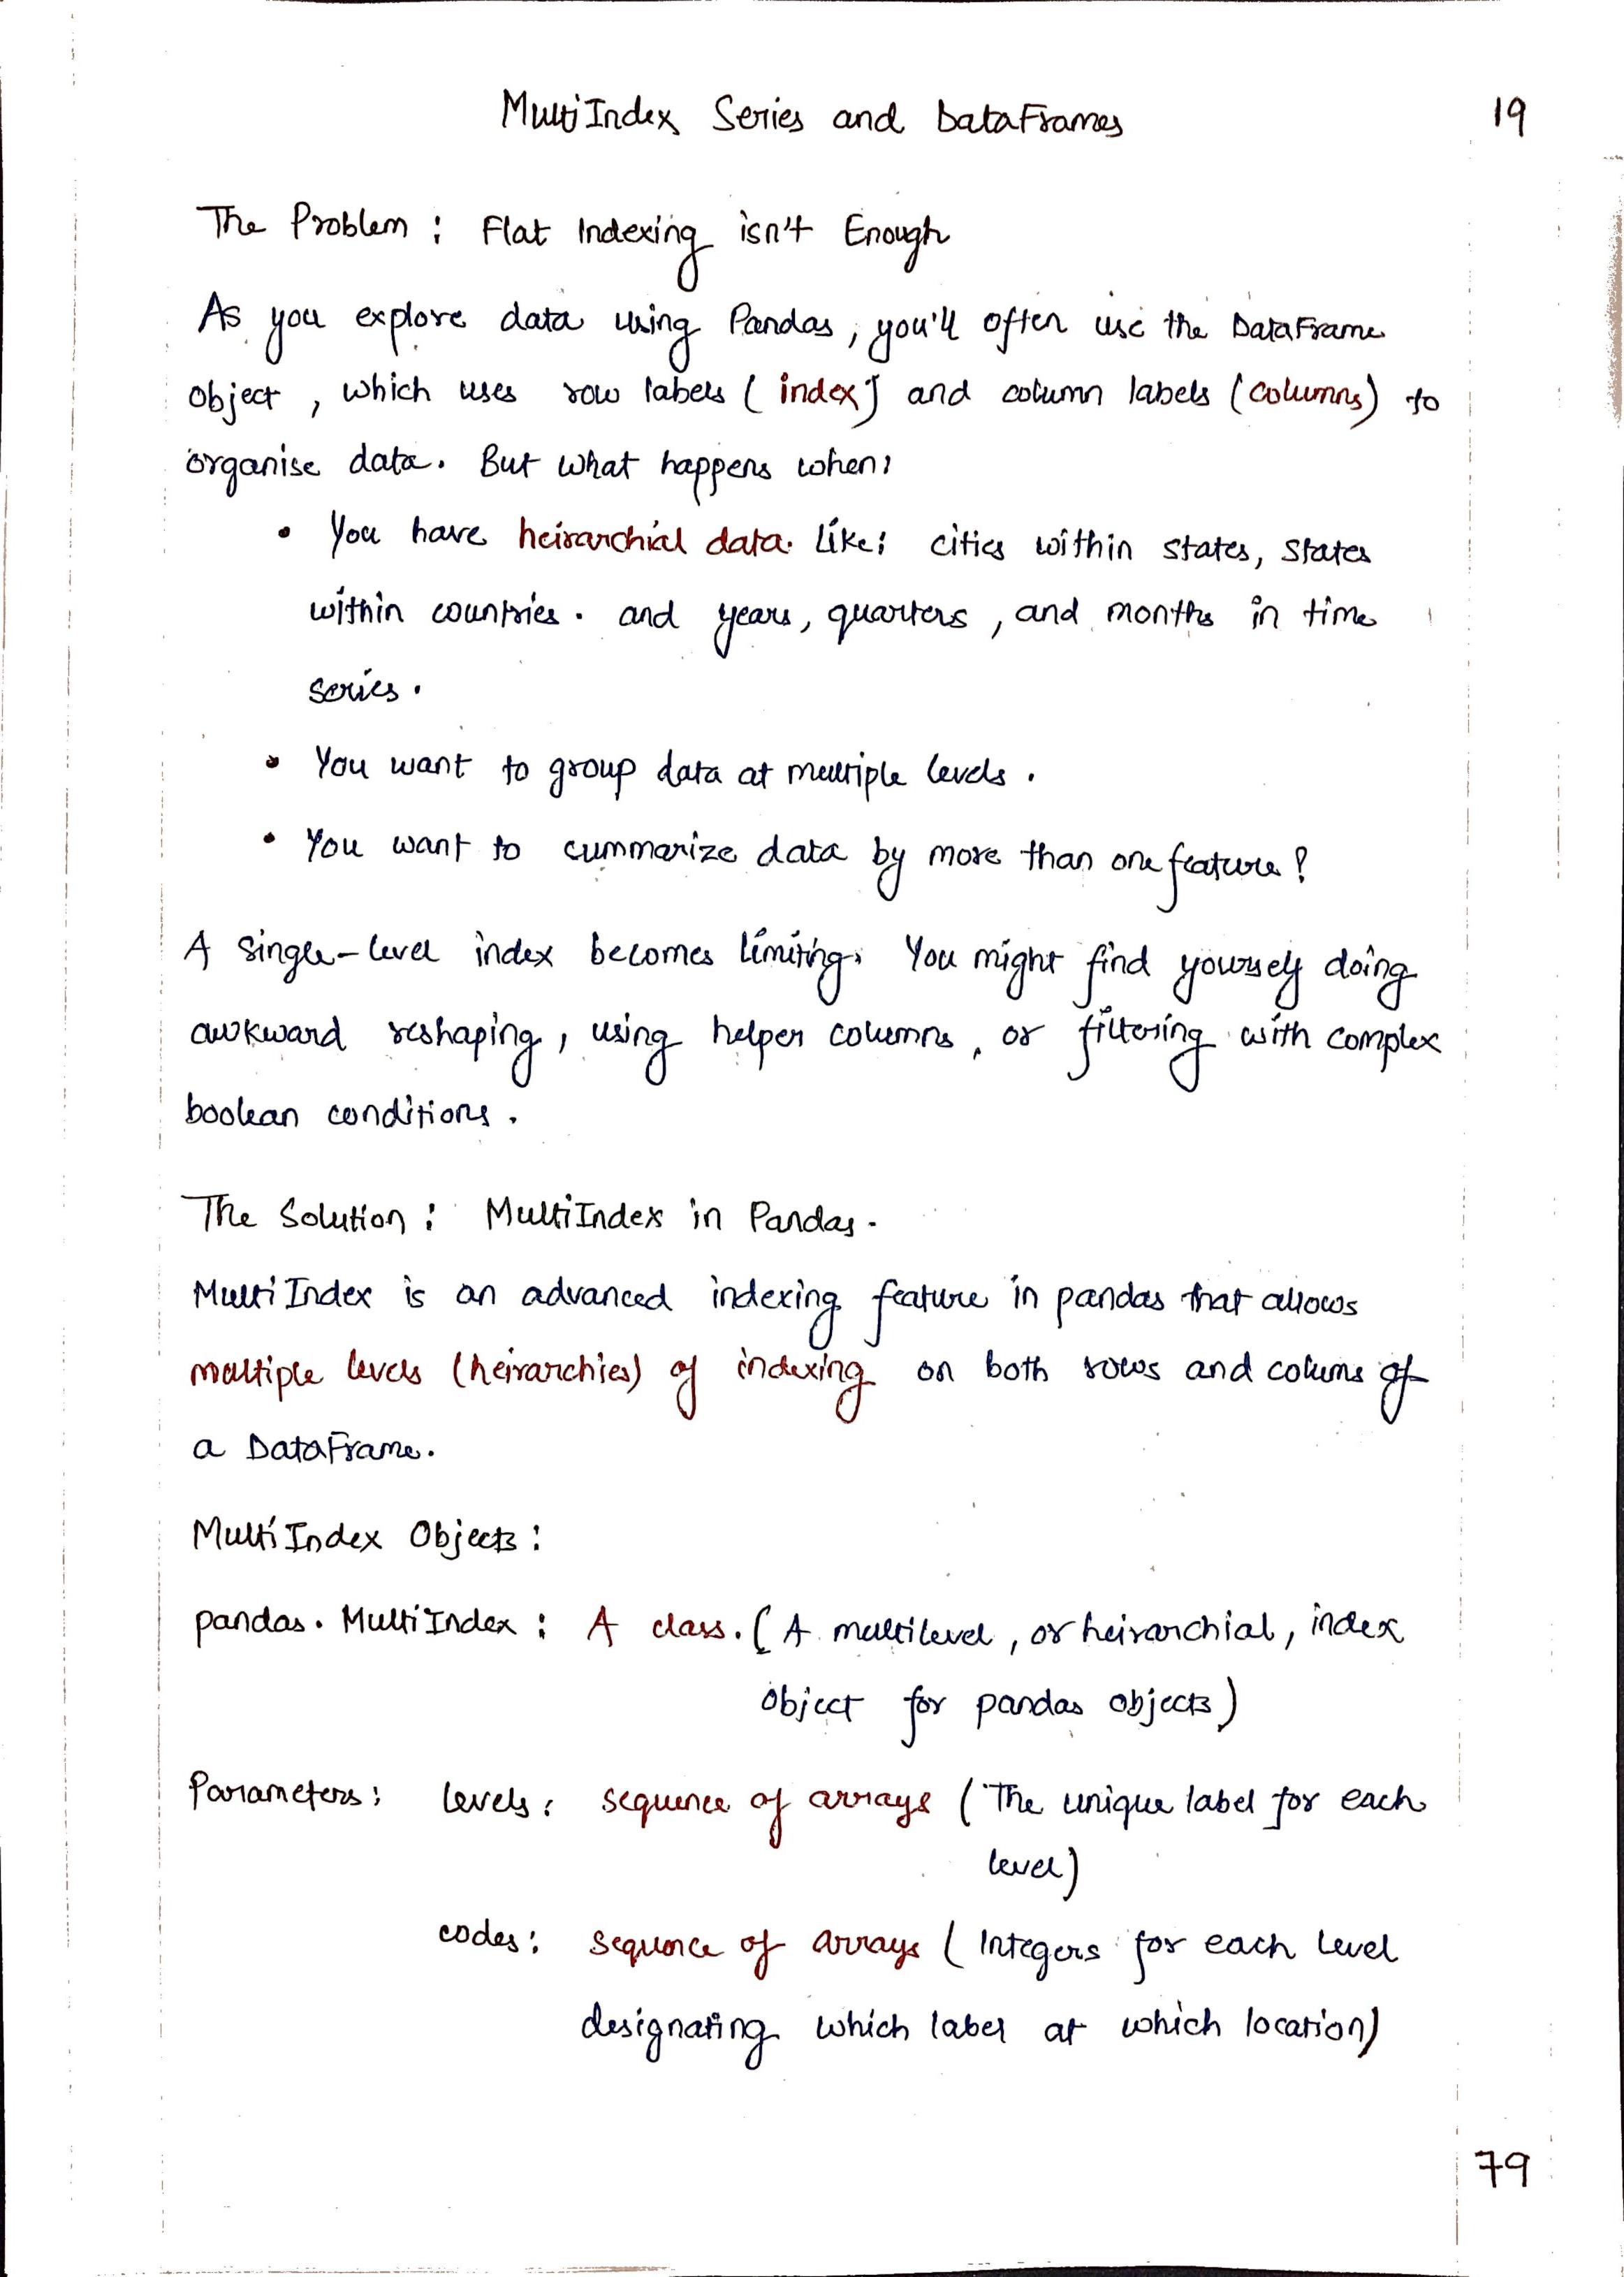 MultiIndex Series and DataFrames 19
The Problem : Flat Indexing isn't Enough
As you explore data using Pandas, you'll often use the DataFrame
object, which uses row labels (index) and column labels (columns) to
organise data. But what happens when:
• You have heirarchial data. Like: cities within states, states
within countries. and years, quarters, and months in time
series.
• You want to group data at multiple levels.
• You want to summarize data by more than one feature?
A single-level index becomes limiting. You might find yourself doing
awkward reshaping, using helper columns, or filtering with complex
boolean conditions.
The Solution : MultiIndex in Pandas.
MultiIndex is an advanced indexing feature in pandas that allows
multiple levels (heirarchies) of indexing on both rows and colums of
a DataFrame.
MultiIndex Objects :
pandas.MultiIndex : A class. (A multilevel, or heirarchial, index
object for pandas objects)
Parameters: levels: sequence of arrays (The unique label for each
level)
codes: sequence of arrays (Integers for each level
designating which label at which location)
79